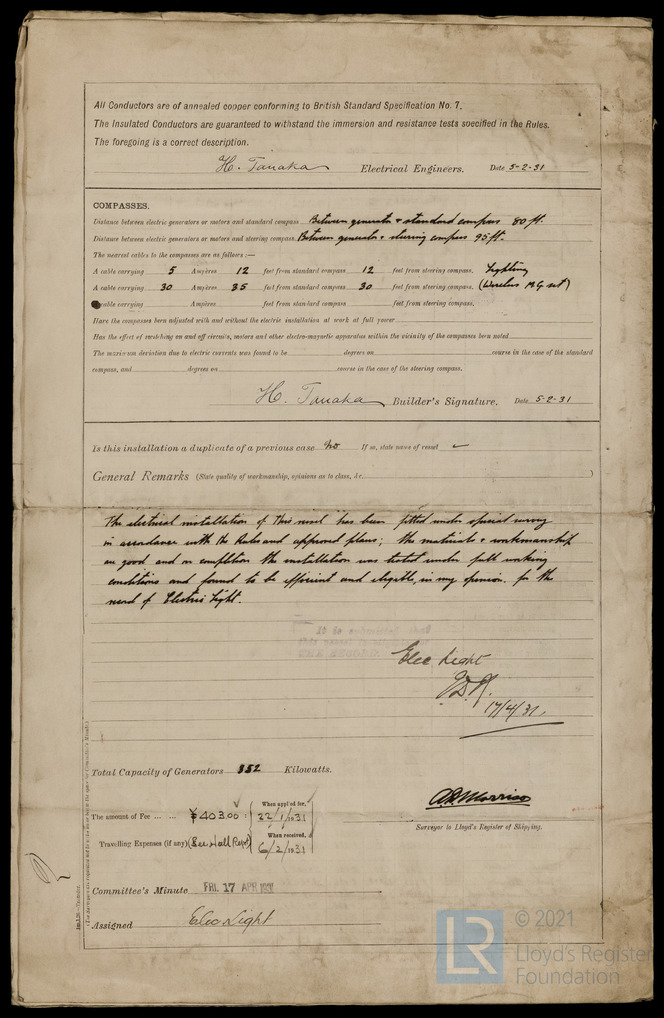 All Conductors are of annealed copper conforming to British Standard Specification No. 7.
The Insulated Conductors are guaranteed to withstand the immersion and resistance tests specified in the Rules.
The foregoing is a correct description.
H. Tanaka Electrical Engineers. Date 5-2-31
COMPASSES.
Distance between electric generators or motors and standard compass Between generator & standard compass 80 ft.
Distance between electric generators or motors and steering compass Between generator & steering compass 95 ft.
The nearest cables to the compasses are as follows:—
A cable carrying 5 Ampères 12 feet from standard compass 12 feet from steering compass. Lighting
A cable carrying 30 Ampères 35 feet from standard compass 30 feet from steering compass. (Wireless M G set)
A cable carrying Ampères feet from standard compass feet from steering compass.
Have the compasses been adjusted with and without the electric installation at work at full power
Has the effect of switching on and off circuits, motors and other electro-magnetic apparatus within the vicinity of the compasses been noted
The maximum deviation due to electric currents was found to be degrees on course in the case of the standard
compass, and degrees on course in the case of the steering compass.
H. Tanaka Builder's Signature. Date 5-2-31
Is this installation a duplicate of a previous case No If so, state name of vessel
General Remarks (State quality of workmanship, opinions as to class, &c. )
The electrical installation of this vessel has been fitted under special survey
in accordance with the Rules and approved plans; the materials & workmanship
are good and on completion the installation was tested under full working
conditions and found to be efficient and eligible, in my opinion, for the
record of Electric Light.
It is submitted that
this vessel
THE RECORD
Elec Light
17/4/31.
Total Capacity of Generators 352 Kilowatts.
The amount of Fee ... ... ¥403.00 When applied for, 22/1/1931
Travelling Expenses (if any) (See Hull Rept) When received, 6/2/1931
Surveyor to Lloyd's Register of Shipping.
Committee's Minute FRI. 17 APR 1931
Assigned Elec Light
© 2021
LR
Lloyd's Register
Foundation